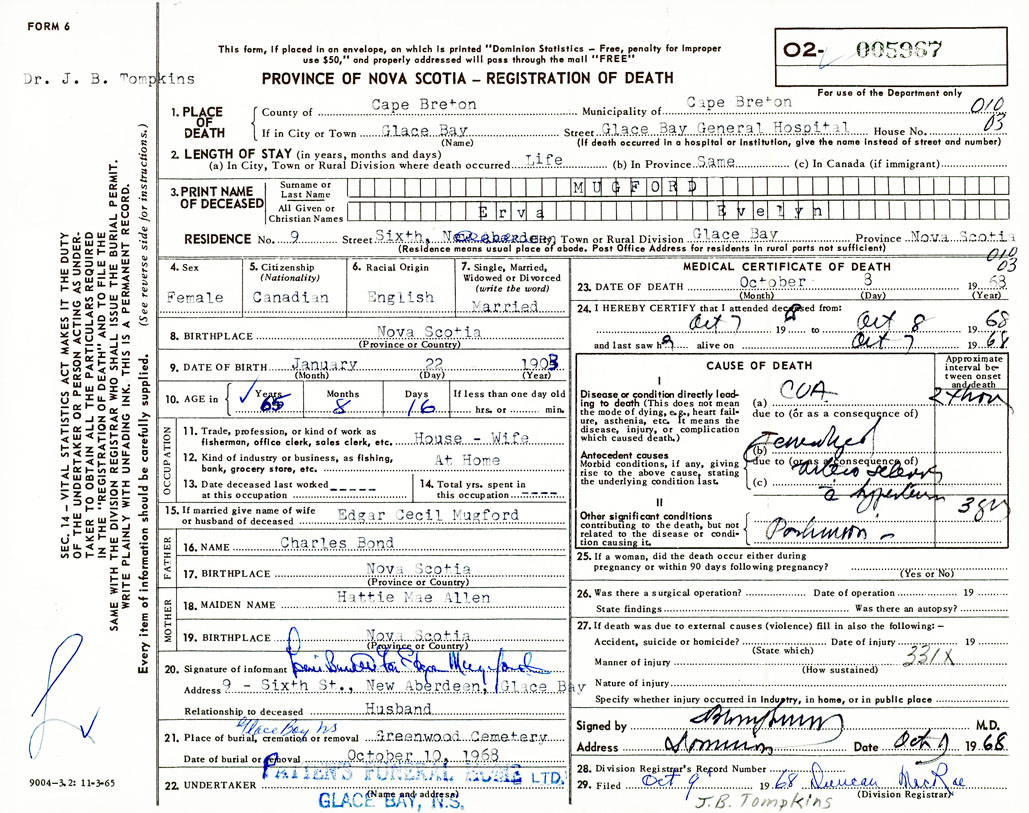 FORM 6
This form, if placed in an envelope, on which is printed "Dominion Statistics – Free, penalty for improper
use $50," and properly addressed will pass through the mail "FREE"
O2- 005967
Dr. J. B. Tompkins
PROVINCE OF NOVA SCOTIA – REGISTRATION OF DEATH
For use of the Department only
1. PLACE OF DEATH
County of Cape Breton Municipality of Cape Breton 010
If in City or Town Glace Bay Street Glace Bay General Hospital House No. 03
(Name) (If death occurred in a hospital or institution, give the name instead of street and number)
2. LENGTH OF STAY (in years, months and days)
(a) In City, Town or Rural Division where death occurred Life (b) In Province Same (c) In Canada (if immigrant)
3. PRINT NAME OF DECEASED
Surname or Last Name MUGFORD
All Given or Christian Names Erva Evelyn
RESIDENCE No. 9 Street Sixth, Town or Rural Division Glace Bay Province Nova Scotia
(Residence means usual place of abode. Post Office Address for residents in rural parts not sufficient)
010
03
4. Sex
Female
5. Citizenship
(Nationality)
Canadian
6. Racial Origin
English
7. Single, Married,
Widowed or Divorced
(write the word)
Married
8. BIRTHPLACE Nova Scotia
(Province or Country)
9. DATE OF BIRTH January 22 1903
(Month) (Day) (Year)
10. AGE in Years 65 Months 8 Days 16 If less than one day old
hrs. or min.
OCCUPATION
11. Trade, profession, or kind of work as
fisherman, office clerk, sales clerk, etc. House - Wife
12. Kind of industry or business, as fishing,
bank, grocery store, etc. At Home
13. Date deceased last worked -----
at this occupation
14. Total yrs. spent in
this occupation ----
15. If married give name of wife
or husband of deceased Edgar Cecil Mugford
FATHER
16. NAME Charles Bond
17. BIRTHPLACE Nova Scotia
(Province or Country)
MOTHER
18. MAIDEN NAME Hattie Mae Allen
19. BIRTHPLACE Nova Scotia
(Province or Country)
20. Signature of informant
Address 9 - Sixth St., New Aberdeen, Glace Bay
Relationship to deceased Husband
Glace Bay NS
21. Place of burial, cremation or removal Greenwood Cemetery
Date of burial or removal October 10, 1968
PATTEN'S FUNERAL HOME LTD.
22. UNDERTAKER (Name and address)
GLACE BAY, N.S.
MEDICAL CERTIFICATE OF DEATH
23. DATE OF DEATH October 8 1968
(Month) (Day) (Year)
24. I HEREBY CERTIFY that I attended deceased from:
Oct 7 19 to Oct 8 1968
and last saw her alive on Oct 7 1968
CAUSE OF DEATH
Approximate
interval be-
tween onset
and death
I
Disease or condition directly lead-
ing to death (This does not mean
the mode of dying, e.g., heart fail-
ure, asthenia, etc. It means the
disease, injury, or complication
which caused death.)
(a) CVA
due to (or as a consequence of)
Antecedent causes
Morbid conditions, if any, giving
rise to the above cause, stating
the underlying condition last.
(b)
due to (or as a consequence of)
(c)
II
Other significant conditions
contributing to the death, but not
related to the disease or condi-
tion causing it.
25. If a woman, did the death occur either during
pregnancy or within 90 days following pregnancy?
(Yes or No)
26. Was there a surgical operation? Date of operation 19
State findings Was there an autopsy?
27. If death was due to external causes (violence) fill in also the following: –
Accident, suicide or homicide? Date of injury 19
(State which)
Manner of injury 331X
(How sustained)
Nature of injury
Specify whether injury occurred in Industry, in home, or in public place
Signed by M.D.
Address Dominion Date Oct 9 1968
28. Division Registrar's Record Number
29. Filed Oct 9 1968 Duncan MacRae
(Division Registrar)
J.B. Tompkins
SEC. 14 – VITAL STATISTICS ACT MAKES IT THE DUTY
OF THE UNDERTAKER OR PERSON ACTING AS UNDER-
TAKER TO OBTAIN ALL THE PARTICULARS REQUIRED
IN THE "REGISTRATION OF DEATH" AND TO FILE THE
SAME WITH THE DIVISION REGISTRAR WHO SHALL ISSUE THE BURIAL PERMIT.
WRITE PLAINLY WITH UNFADING INK. THIS IS A PERMANENT RECORD.
Every item of information should be carefully supplied. (See reverse side for instructions.)
9004–3.2: 11-3-65